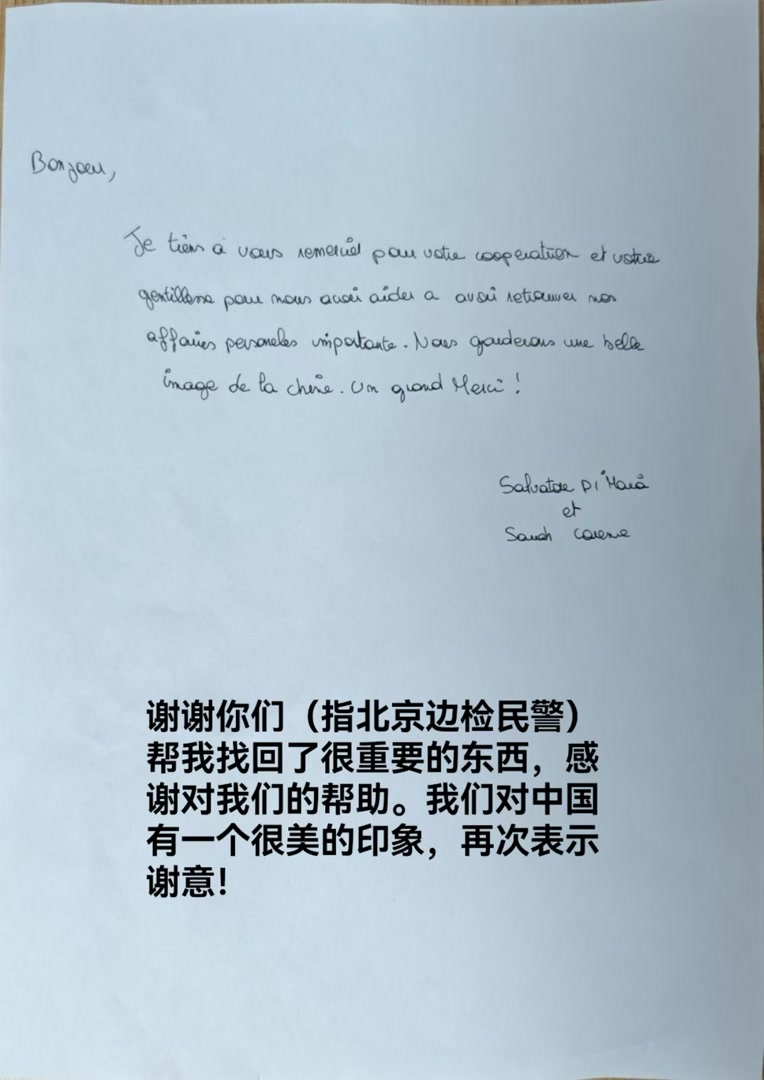 Bonjour,
Je tiens à vous remercier pour votre cooperation et votre
gentillesse pour nous avoir aider a avoir retrouver nos
affaires personeles importante. Nous garderons une belle
image de la chine. Un grand Merci !
Salvatore Di
et
Sarah
谢谢你们（指北京边检民警）
帮我找回了很重要的东西，感
谢对我们的帮助。我们对中国
有一个很美的印象，再次表示
谢意！